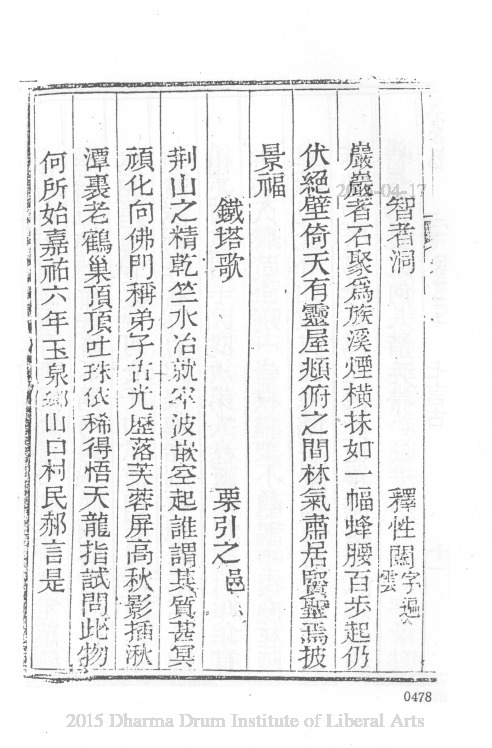 智者洞 釋性閎字遍雲
巖巖著石聚為族溪煙橫抹如一幅蜂腰百步起仍
伏絕壁倚天有靈屋頫俯之間林氣肅居賢聖焉披
景福
鐵塔歌 栗引之邑人
荆山之精乾竺水冶就窣波嵌空起誰謂其質甚冥
頑化向佛門稱弟子古光歷落芙蓉屏高秋影插湫
潭裏老鶴巢頂頂吐珠依稀得悟天龍指試問此物
何所始嘉祐六年玉泉鄉山口村民郝言是
0478
2015 Dharma Drum Institute of Liberal Arts